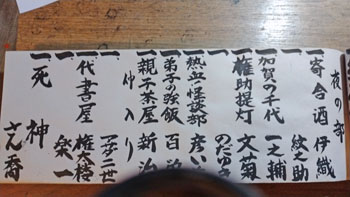 夜の部
一 寄合酒 伊織
一 紋之助
一 加賀の千代 一之輔
一 権助提灯 文菊
のだゆき
一 熱血怪談部 彦いち
一 弟子の強飯 百栄
一 親子茶屋 新治
仲入り
一 二世
一 代書屋 権太楼
一 楽一
一 死神 さん喬